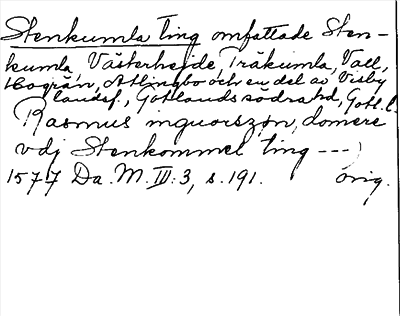 Stenkumla ting omfattade Sten-
kumla, Västerhejde, Träkumla, Vall,
Hogrän, Atlingbo och en del av Visby
landsf., Gotlands södra hd, Gotl. l.
Rasmus inguorszøn, domere
vdj Stenkommel ting ---)
1577 Da. M. III:3, s. 191. orig.